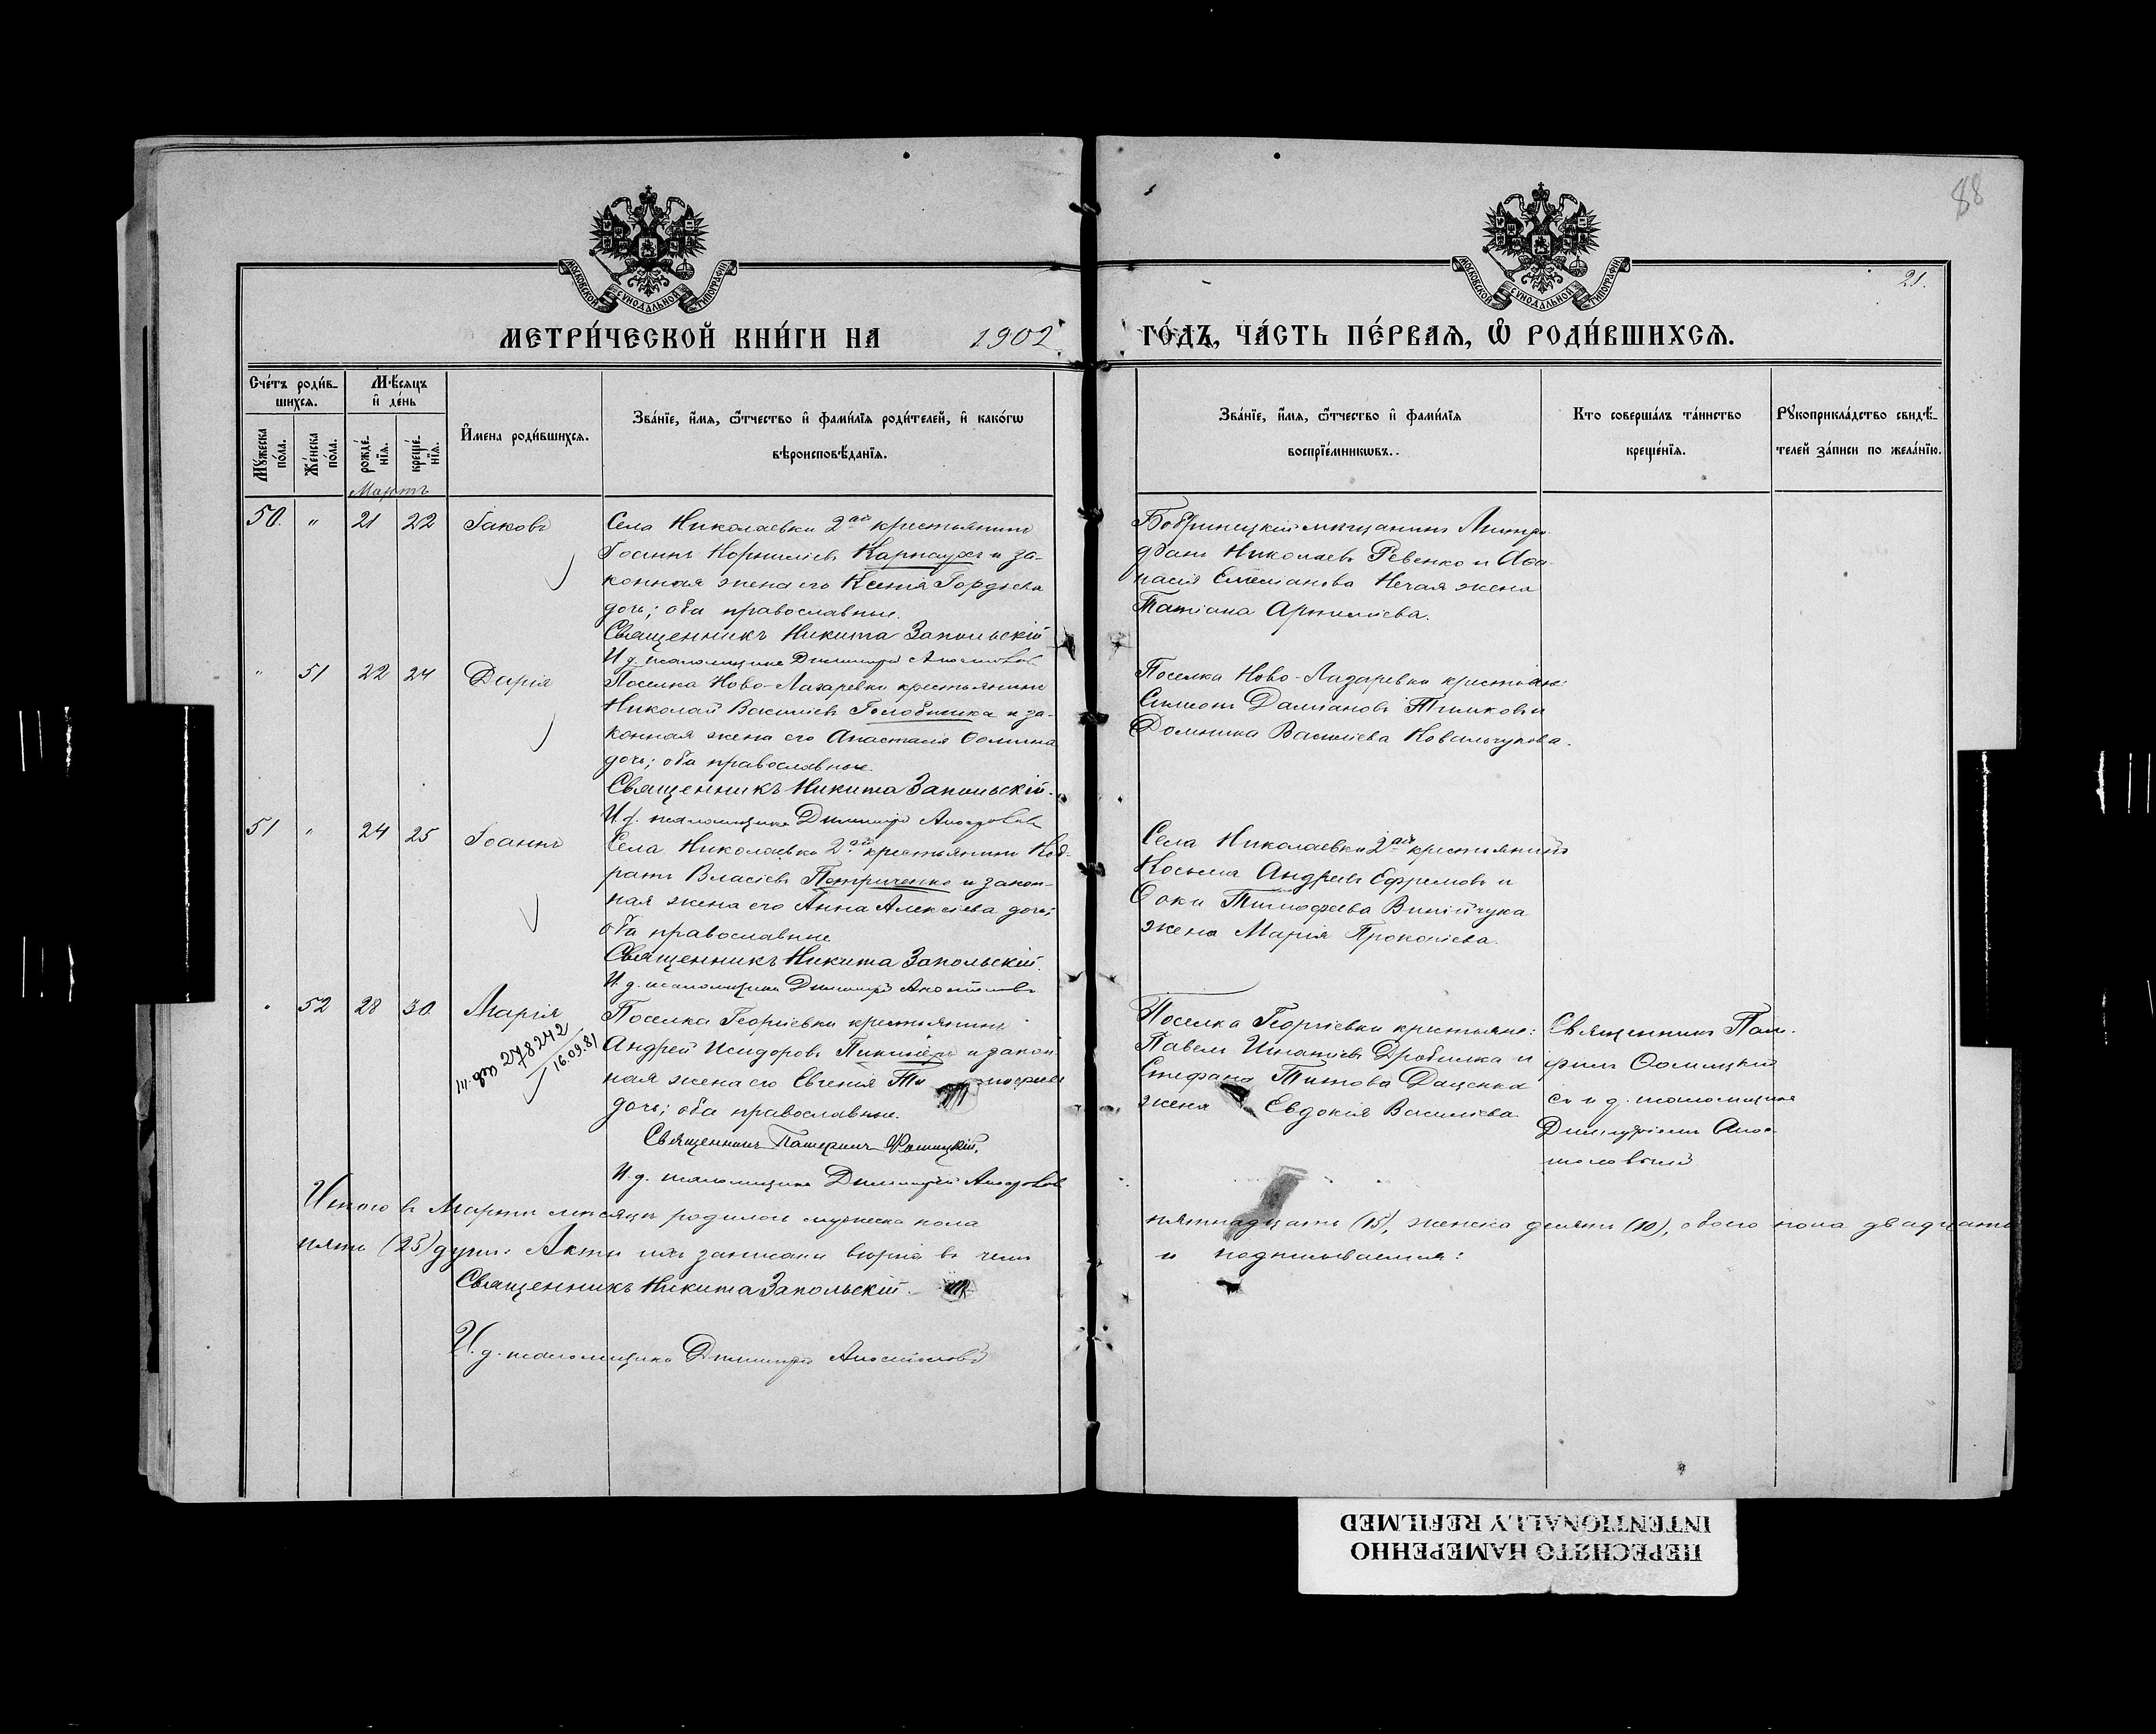 88
21.
МОСКОВСКОЙ СѴНОДАЛЬНОЙ ТИПОГРАФІИ
МОСКОВСКОЙ СѴНОДАЛЬНОЙ ТИПОГРАФІИ
МЕТРИ́ЧЕСКОЙ КНИ́ГИ НА 1902 ГО́ДЪ, ЧА́СТЬ ПЕ́РВАЯ, Ѽ РОДИ́ВШИХСЯ.
Сче́тъ роди́в-
шихся.
Мꙋ́жеска по́ла.
Же́нска по́ла.
Мѣ́сяцъ
и҆ де́нь
рожде́нїя.
креще́нїя.
И҆мена роди́вшихся.
Зва́нїе, и҆́мя, ѻ҆́тчество и҆ фами́лїя роди́телей, и҆ како́гѡ
вѣроисповѣ́данїя.
Зва́нїе, и҆́мя, ѻ҆́тчество и҆ фами́лїя
воспрїе́мникѡвъ.
Кто соверша́лъ та́инство
креще́нїя.
Рꙋкоприкла́дство свидѣ́-
телей за́писи по жела́нїю.
Мартъ
50. " 21 22 Іаковъ
Села Николаевки 2ой крестьянинъ
Іоаннъ Корнилiевъ Карпаухъ и за-
конная жена его Ксенія Гордѣева
дочь; оба православные.
Священникъ Никита Запольскій
И. д. псаломщика Димитрій Апостоловъ
Бобринецкій мѣщанинъ Митро-
фанъ Николаевъ Ревенко и Аѳа-
насія Емеліанова Нечая жена
Татіана Артиміева.
" 51 22 24 Дарія
Поселка Ново-Лазаревки крестьянинъ
Николай Василіевъ и за-
конная жена его Анастасія Ѳомина
дочь; оба православные.
Священникъ Никита Запольскій.
И. д. псаломщика Димитрій Апостоловъ
Поселка Ново-Лазаревки крестьяне:
Симеонъ Даміановъ Тимковъ и
Домника Василіева Ковальчукова.
51 " 24 25 Іоаннъ
Села Николаевки 2ой крестьянинъ Код-
ратъ Власіевъ Петриченко и закон-
ная жена его Анна Алексіева дочь;
оба православные
Священникъ Никита Запольскій.
И. д. псаломщика Димитрій Апостоловъ
Села Николаевки 2ой крестьянинъ
Косьма Андреевъ Ефремовъ и
Ѳоки Тимофеева Винійчука
жена Марія Прокопіева.
" 52 28 30 Марія
278242
16.09.81
Поселка Георгіевки крестьянинъ
Андрей Исидоровъ и закон-
ная жена его Евгенія
дочь; оба православные.
Священникъ
И. д. псаломщика Димитрій Апостоловъ
Поселка Георгіевки крестьяне:
Павелъ Игнатіевъ Дробилка и
Стефана Титова Даценка
жена Евдокія Василіева.
Священникъ Пам-
филъ
съ и. д. псаломщика
Димитріемъ Апос-
толовымъ
Итого въ Мартѣ мѣсяцѣ родилось мужеска пола пятнадцать (15), женска десять (10), обоего пола двадцать
пять (25) душъ: Акты ихъ записаны вѣрно въ чемъ и подписываемся:
Священникъ Никита Запольскій.
И. д. псаломщика Димитрій Апостоловъ
ПЕРЕСНЯТО НАМЕРЕННО
INTENTIONALLY REFILMED